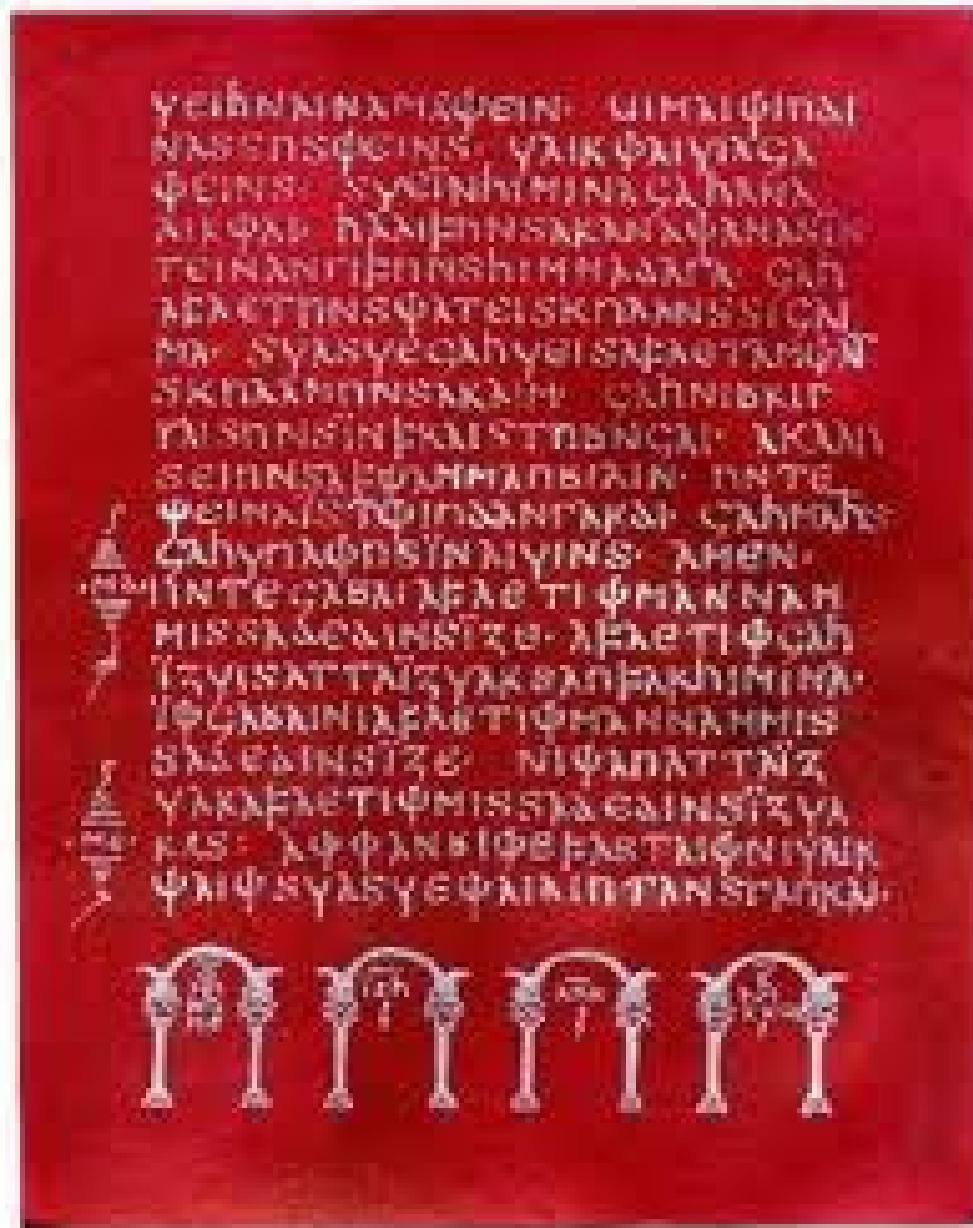 𐍅𐌴𐌹𐌷𐌽𐌰𐌹𐌽𐌰𐌼𐍉𐌸𐌴𐌹𐌽· 𐌵𐌹𐌼𐌰𐌹𐌸𐌹𐌿𐌳𐌹
𐌽𐌰𐍃𐍃𐌿𐍃𐌸𐌴𐌹𐌽𐍃· 𐍅𐌰𐌹𐍂𐌸𐌰𐌹𐍅𐌹𐌻𐌾𐌰
𐌸𐌴𐌹𐌽𐍃· 𐍃𐍅𐌴𐌹̈𐌽𐌷𐌹𐌼𐌹𐌽𐌰𐌾𐌰𐌷𐌰𐌽𐌰
𐌰𐌹𐍂𐌸𐌰𐌹· 𐌷𐌻𐌰𐌹𐍆𐌿𐌽𐍃𐌰𐍂𐌰𐌽𐌰𐌸𐌰𐌽𐌰𐍃𐌹𐌽
𐍄𐌴𐌹𐌽𐌰𐌽𐌲𐌹𐍆𐌿𐌽𐍃𐌷𐌹𐌼𐌼𐌰𐌳𐌰𐌲𐌰· 𐌾𐌰𐌷
𐌰𐍆𐌻𐌴𐍄𐌿𐌽𐍃𐌸𐌰𐍄𐌴𐌹𐍃𐌺𐌿𐌻𐌰𐌽𐍃𐍃𐌹𐌾𐌰𐌹
𐌼𐌰· 𐍃𐍅𐌰𐍃𐍅𐌴𐌾𐌰𐌷𐍅𐌴𐌹𐍃𐌰𐍆𐌻𐌴𐍄𐌰𐌼𐌸𐌰𐌹𐌼
𐍃𐌺𐌿𐌻𐌰𐌼𐌿𐌽𐍃𐌰𐍂𐌰𐌹𐌼· 𐌾𐌰𐌷𐌽𐌹𐌱𐍂𐌹𐌲
𐌲𐌰𐌹𐍃𐌿𐌽𐍃𐌹̈𐌽𐍆𐍂𐌰𐌹𐍃𐍄𐌿𐌱𐌽𐌾𐌰𐌹· 𐌰𐌺𐌻𐌰𐌿
𐍃𐌴𐌹𐌿𐌽𐍃𐌰𐍆𐌸𐌰𐌼𐌼𐌰𐌿𐌱𐌹𐌻𐌹𐌽· 𐌿𐌽𐍄𐌴
𐌸𐌴𐌹𐌽𐌰𐌹𐍃𐍄𐌸𐌹𐌿𐌳𐌰𐌽𐌲𐌰𐍂𐌳𐌹· 𐌾𐌰𐌷𐌼𐌰𐌷𐍄𐍃
𐌾𐌰𐌷𐍅𐌿𐌻𐌸𐌿𐍃𐌹̈𐌽𐌰𐌹𐍅𐌹𐌽𐍃· 𐌰𐌼𐌴𐌽·
𐌿𐌽𐍄𐌴𐌾𐌰𐌱𐌰𐌹𐌰𐍆𐌻𐌴𐍄𐌹𐌸𐌼𐌰𐌽𐌽𐌰𐌼
𐌼𐌹𐍃𐍃𐌰𐌳𐌴𐌳𐌹𐌽𐍃𐌹̈𐌶𐌴· 𐌰𐍆𐌻𐌴𐍄𐌹𐌸𐌾𐌰𐌷
𐌹̈𐌶𐍅𐌹𐍃𐌰𐍄𐍄𐌰𐌹̈𐌶𐍅𐌰𐍂𐍃𐌰𐌿𐍆𐌰𐍂𐌷𐌹𐌼𐌹𐌽𐌰·
𐌹̈𐌸𐌾𐌰𐌱𐌰𐌹𐌽𐌹𐌰𐍆𐌻𐌴𐍄𐌹𐌸𐌼𐌰𐌽𐌽𐌰𐌼𐌼𐌹𐍃
𐍃𐌰𐌳𐌴𐌳𐌹𐌽𐍃𐌹̈𐌶𐌴· 𐌽𐌹𐌸𐌰𐌿𐌰𐍄𐍄𐌰𐌹̈𐌶
𐍅𐌰𐍂𐌰𐍆𐌻𐌴𐍄𐌹𐌸𐌼𐌹𐍃𐍃𐌰𐌳𐌴𐌳𐌹𐌽𐍃𐌹̈𐌶𐍅𐌰
𐍂𐍉𐍃: 𐌰𐌸𐌸𐌰𐌽𐌱𐌹𐌸𐌴𐍆𐌰𐍃𐍄𐌰𐌹𐌸𐌽𐌹𐍅𐌰𐌹𐍂
𐌸𐌰𐌹𐌸𐍃𐍅𐌰𐍃𐍅𐌴𐌸𐌰𐌹𐌻𐌹𐌿𐍄𐌰𐌽𐍃𐌲𐌰𐌿𐍂𐌰𐌹·